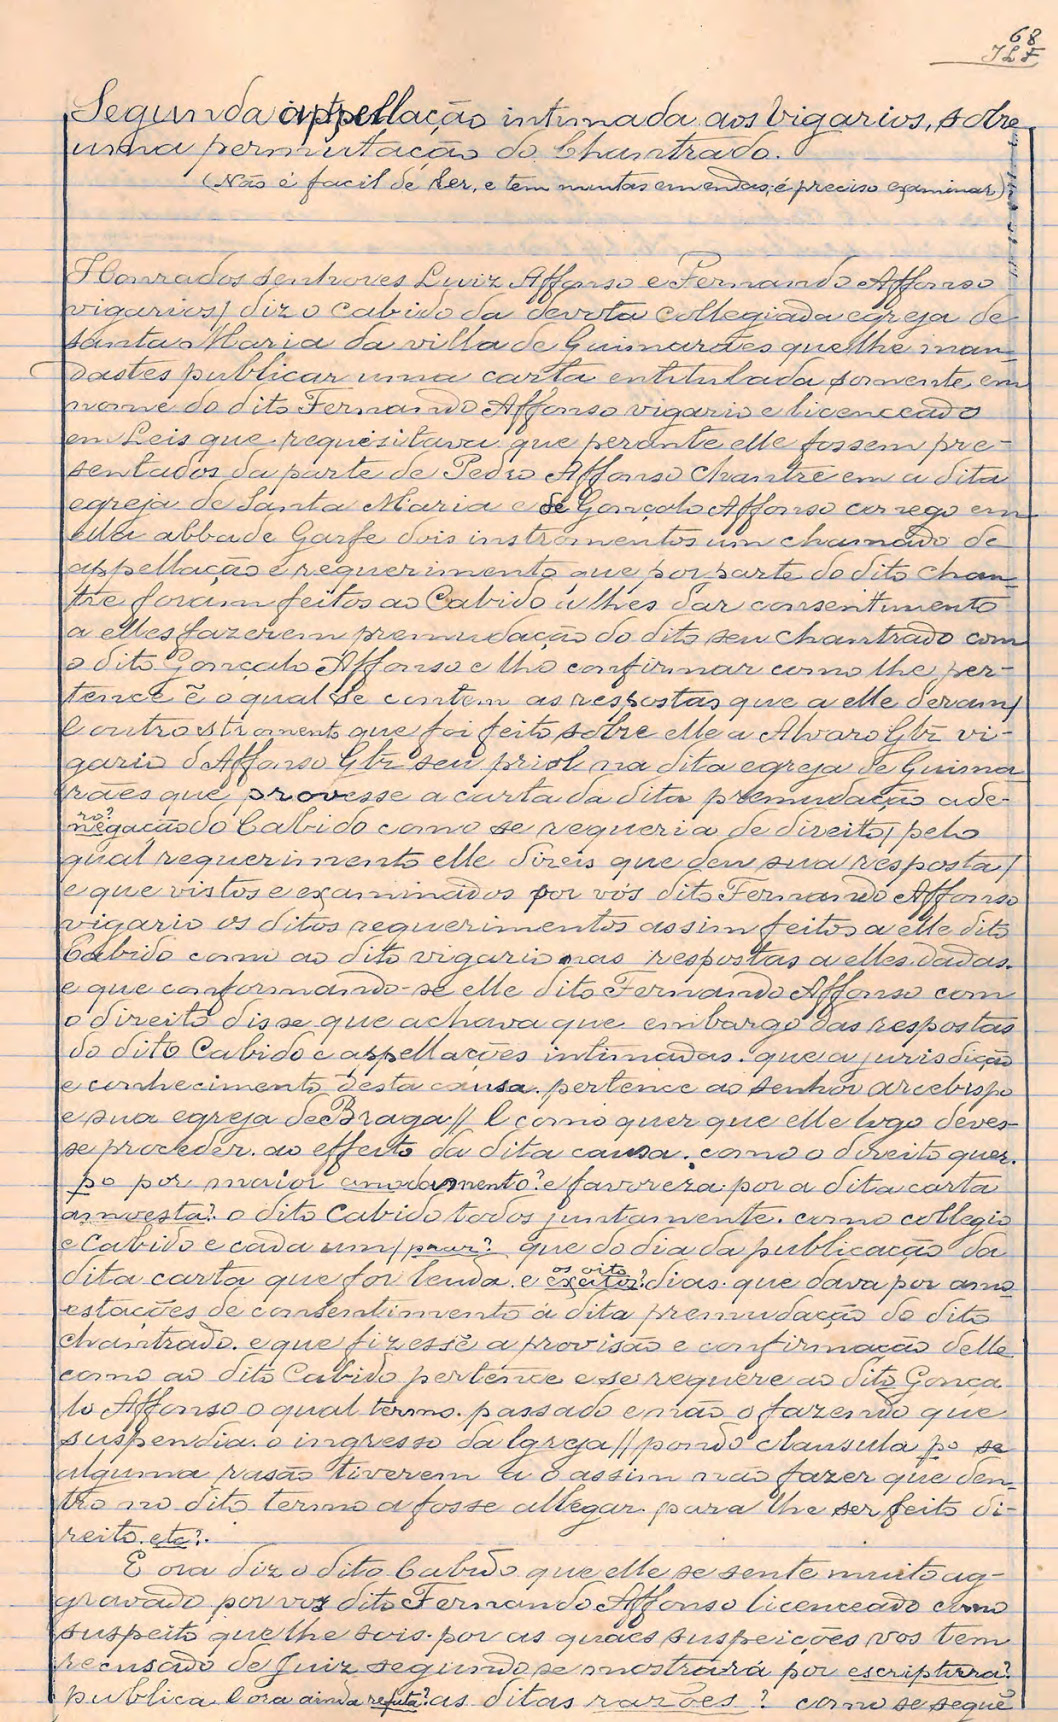 68
J L F
Segunda appellação intimada aos vigarios, sobre
uma permutação do Chantrado.
(Não é facil de ler, e tem muitas emendas; é preciso examinar)
Honrados senhores Luiz Affonso e Fernando Affonso
vigarios/ diz o Cabido da devota collegiada egreja de
Santa Maria da villa de Guimarães que lhe man-
dastes publicar uma carta entitulada somente em
nome do dito Fernando Affonso vigario e licenceado
em Leis que requisitava que perante elle fossem pre-
sentados da parte de Pedro Affonso chantre em a dita
egreja de Santa Maria e de Gonçalo Affonso conego em
ella abbade Garfe dois instromentos um chamado de
appellação e requerimento que por parte do dito chan-
tre foram feitos ao Cabido a lhes dar consentimento
a elles fazerem premudação do dito seu chantrado com
o dito Gonçalo Affonso e lho confirmar como lhe per-
tence ẽ o qual se contem as respostas que a elle deram/
E outro stromento que foi feito sobre elle a Alvaro Glz vi-
gario d'Affonso Glz seu priol na dita egreja de Guima
rães que provesse a carta da dita premudação a de-
ro?
negação do Cabido como se requeria de direito/ pelo
qual requerimento elle direis que deu sua resposta/
e que vistos e examinados por vós dito Fernando Affonso
vigario os ditos requerimentos assim feitos a elle dito
Cabido como ao dito vigario nas respostas a elles dadas.
e que conformando-se elle dito Fernando Affonso com
o direito disse que achava que embargo das respostas
do dito Cabido e appellações intimadas. que a jurisdição
e conhecimento desta causa. pertence ao senhor arcebispo
e sua egreja de Braga// E como quer que elle logo deves-
se proceder. ao effeito da dita causa. como o direito quer.
po por maior amoadamento? e favoreza. por a dita carta
amoesta?. o dito Cabido todos juntamente. como collegio
e Cabido e cada um/ paar? que do dia da publicação da
os oito
dita carta que for leuda. e exator? dias. que dava por amo
estações de consentimento á dita premudação do dito
chantrado. e que fizesse a provisão e confirmação delle
como ao dito Cabido pertence e se requere ao dito Gonça
lo Affonso o qual termo. passado e não o fazendo que
suspendia. o ingresso da Igreja// pondo clausula po se
alguma rasão tiverem a o assim não fazer que den-
tro no dito termo a fosse allegar. para lhe ser feito di-
reito. etc?.
E ora diz o dito Cabido que elle se sente muito ag-
gravado por vos dito Fernando Affonso licenceado como
suspeito que lhe sois. por as quaes suspeições vos tem
recusado de Juiz segundo se mostrará por escriptura?
publica. E ora ainda refuta? as ditas razões? como se segue